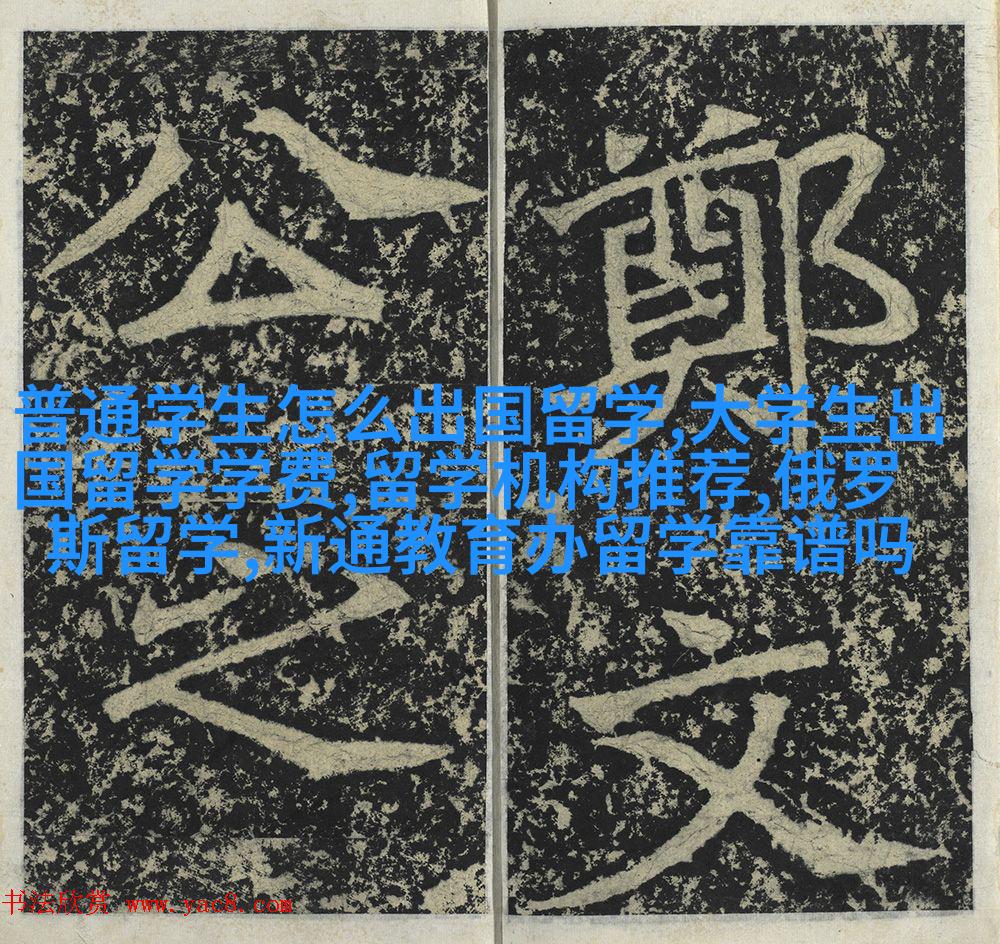 鄭文
公之
普通学生怎么出国留学,大学生出
国留学学费,留学机构推荐,俄罗
斯留学,新通教育办留学靠谱吗
书法欣赏 www.yac8.com